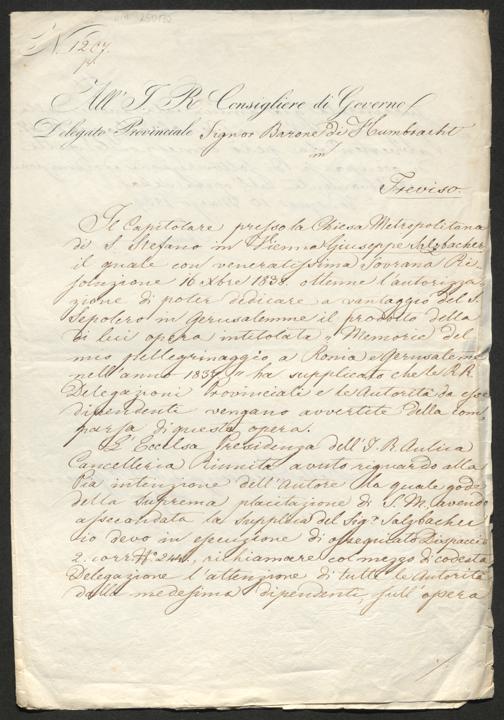 N. 1207.
pr.
All' I. R. Consigliere di Governo
Delegato Provinciale Signor Barone de Humbracht
in
Treviso.
Il Capitolare presso la Chiesa Metropolitana
di S. Stefano in Vienna Giuseppe Salzbacher
il quale con veneratissima Sovrana Ri-
soluzione 16 Xbre 1838 ottenne l'autorizza-
zione di poter dedicare a vantaggio del S.
Sepolcro in Gerusalemme il prodotto della
di lui opera intitolata „ Memorie del
mio pellegrinaggio a Roma e Gerusalemme
nell'anno 1837 „ ha supplicato che le RR.
Delegazioni Provinciali e le Autorità da esse
dipendenti vengano avvertite della com-
parsa di questa opera.
L'Eccelsa Presidenza dell'I. R. Aulica
Cancelleria Riunita avuto riguardo alla
Pia intenzione dell'Autore la quale gode
della suprema placitazione di S. M. avendo
assecondata la supplica del Sigr. Salzbacher
io devo in esecuzione di ossequiato Dispaccio
2. corr. N.° 244, richiamare col mezzo di codesta
Delegazione l'attenzione di tutte le Autorità
dalla medesima dipendenti, sull'opera